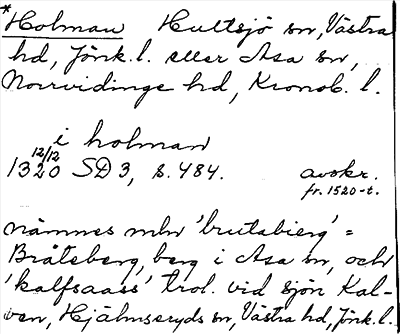 *Holman Hultsjö sn, Västra
hd, Jönk. l. eller Asa sn,
Norrvidinge hd, Kronob. l.
i holman
12/12
1320 SD 3, s. 484. avskr.
fr. 1520-t.
nämnes mln 'brutabierg' =
Bråteberg, berg i Asa sn, och
'kalfsaass' trol. vid sjön Kal-
ven, Hjälmseryds sn, Västra hd, Jönk. l.